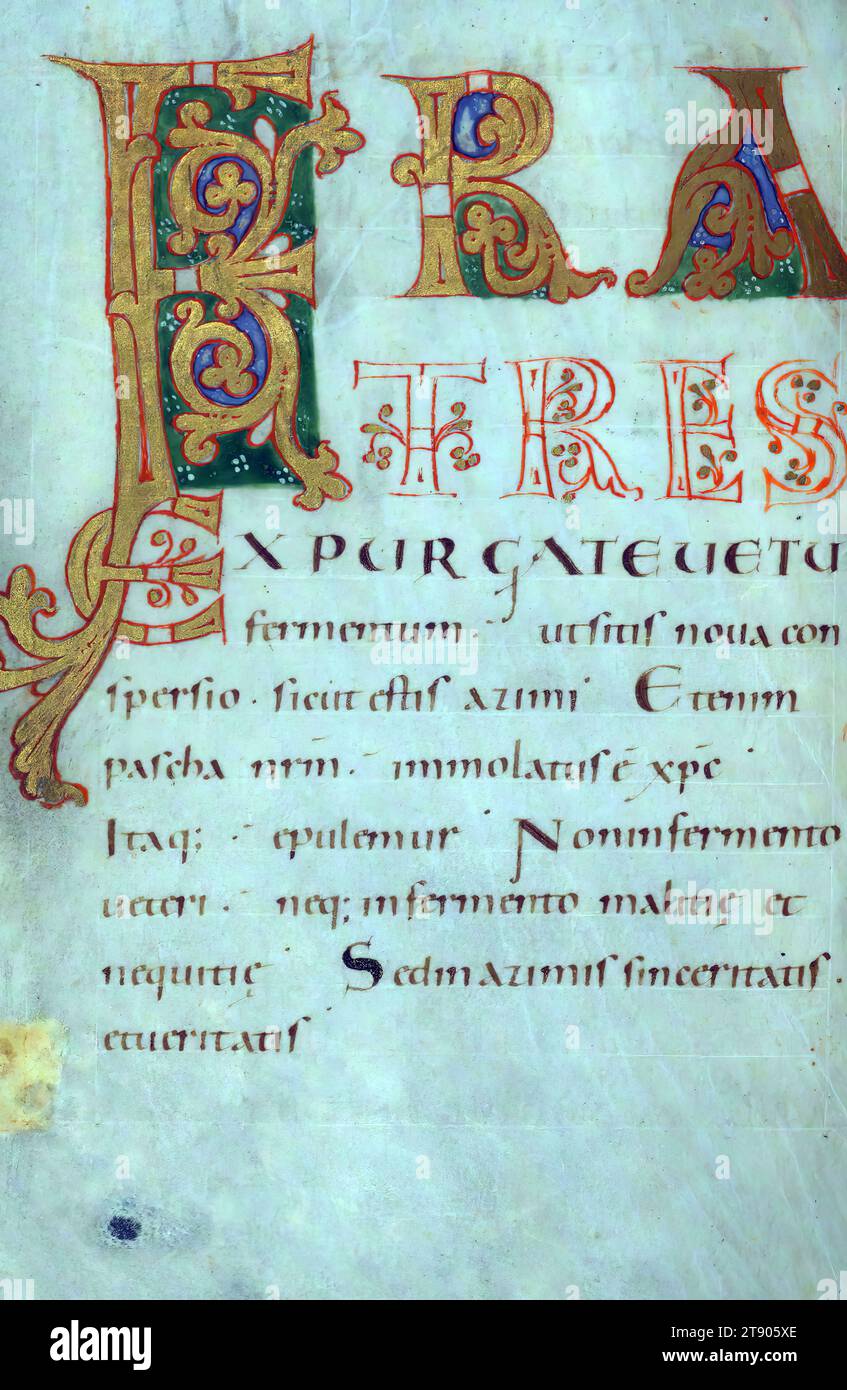 FRA
TRES
EXPURGATE UETU
fermentum. ut sitis noua con
spersio. sicut estis azimi Etenim
pascha nrm̄. immolatus ē xp̄c
Itaq; epulemur Non in fermento
ueteri. neq; in fermento malitię et
nequitię Sed in azimis sinceritatis.
et ueritatis
alamy
Image ID: 2T905XE
www.alamy.com